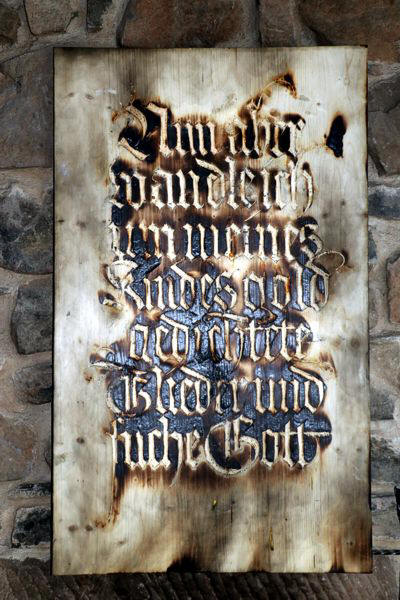 Nun aber
wandle ich
um meines
Kindes gold
gedichtete
Glieder und
suche Gott